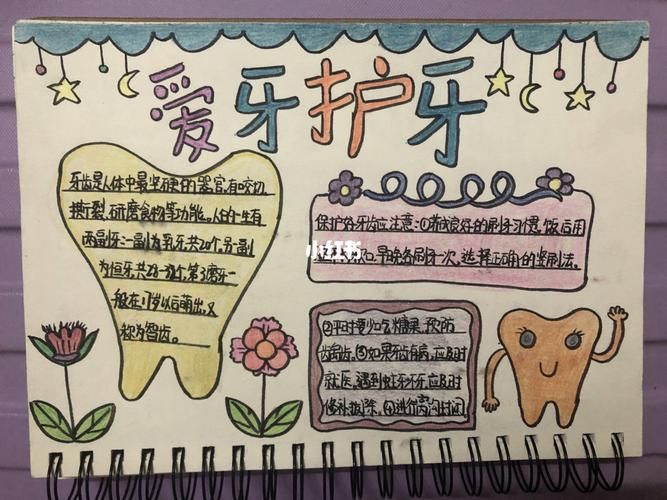 爱牙护牙
牙齿是人体中最坚硬的器官,有咬切、
撕裂、研磨食物等功能。人的一生有
两副牙:一副为乳牙共20个,另一副
为恒牙共28-32个,第3磨牙一
般在17岁以后萌出,又
称为智齿。
保护好牙齿应注意:①养成良好的刷牙习惯,饭后用
早晚各刷牙一次,选择正确的竖刷法。
小红书
②平时要少吃糖果,预防
龋齿。③如果牙齿有病,应及时
就医。遇到蛀牙坏牙,应及时
修补拔除。④进行窝沟封闭。